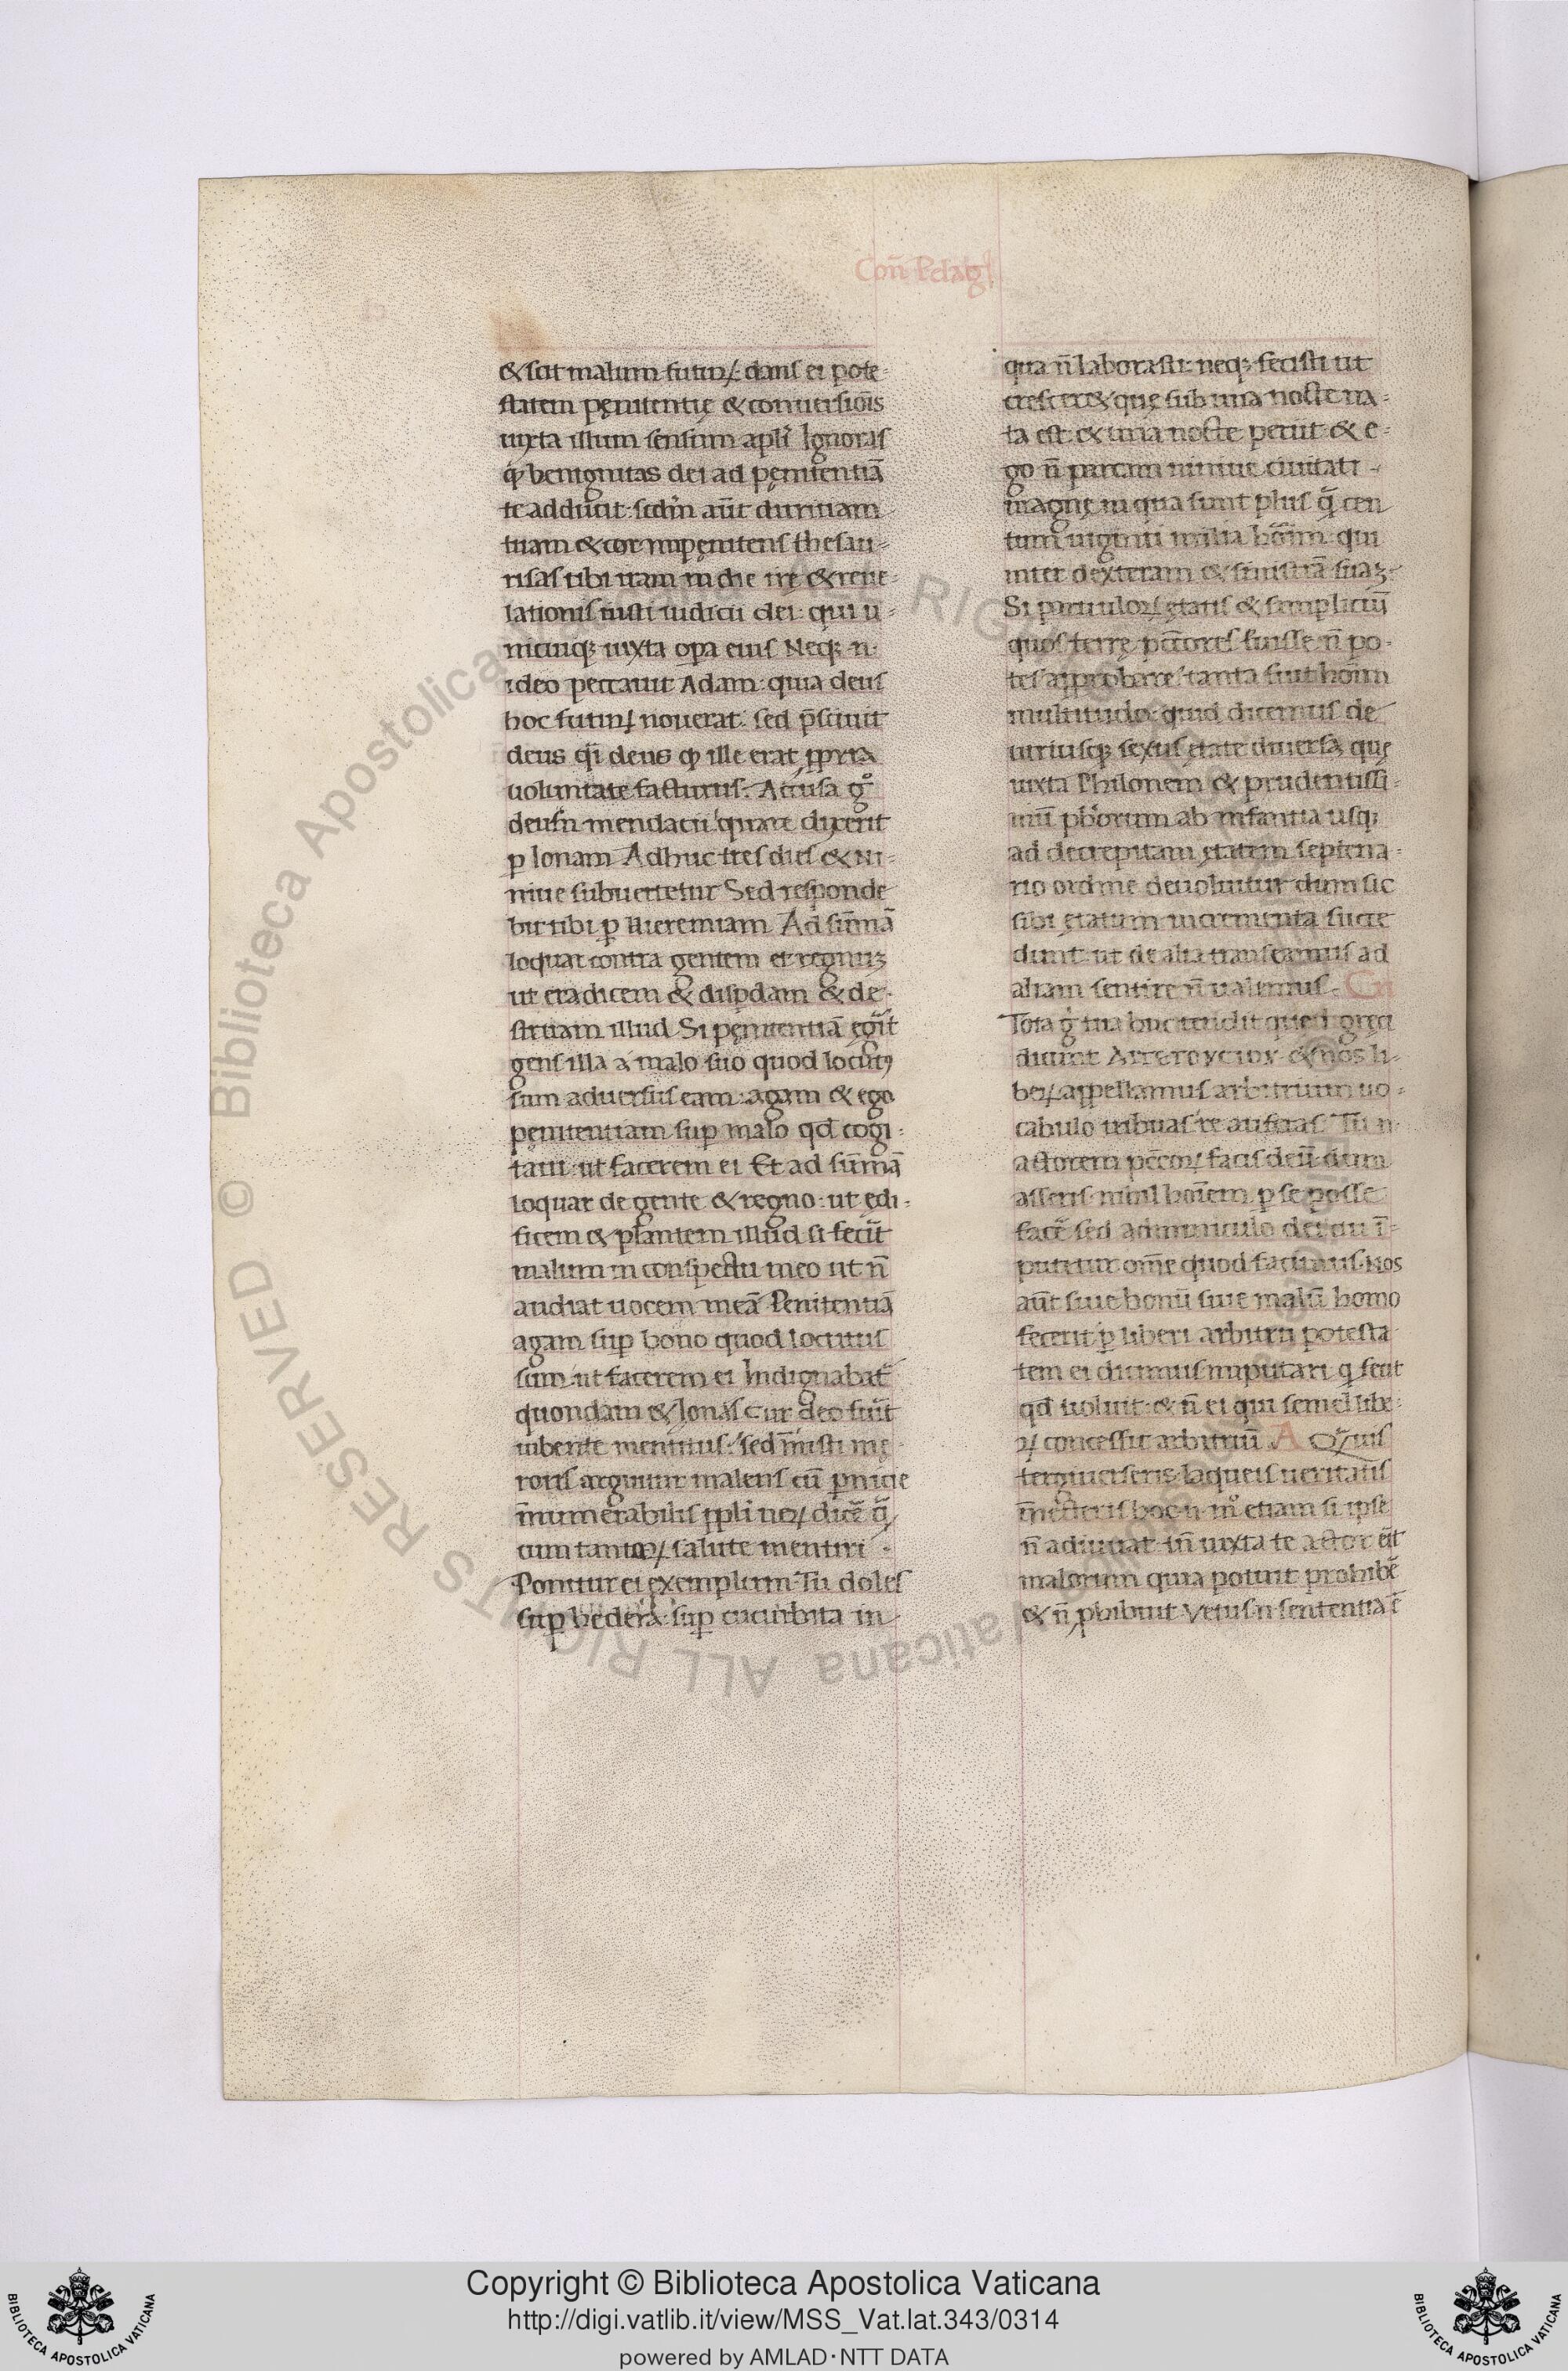 Con̄ Pelag̃
& scit malum futurꝝ: dans ei pote-
statem pęnitentię & conuersiōis
iuxta illum sensum apl̄i Ignoras
qd̓ benignitas dei ad pęnitentiā
te adducit: scdm̄ aūt duritiam
tuam & cor inpęnitens thesau-
risas tibi iram in die irę & reue-
lationis iusti iudicii dei: qui u-
nicuiq; iuxta oꝑa eius Neq; n̄
ideo peccauit Adam: quia deus
hoc futurꝝ nouerat: sed p̄sciuit
deus qī deus ꝙ ille erat ꝓpria
uoluntate facturus. Accusa g°
deum mendacii quare dixerit
ꝑ Ionam Adhuc tres dies & ni-
niue subuertetur Sed responde
bit tibi ꝑ Hieremiam Ad sūmā
loquar contra gentem et regnuꝫ
ut eradicem & disꝑdam & de-
struam illud Si pęnitentiā egīt
gens illa a malo suo quod locutꝰ
sum aduersus eam: agam & ego
pęnitentiam suꝑ malo qd̄ cogi-
taui: ut facerem ei Et ad sūmā
loquar de gente & regno: ut ędi-
ficem & plantem illud si fecīt
malum in conspectu meo ut n̄
audiat uocem meā Penitentiā
agam suꝑ bono quod locutus
sum ut facerem ei Indignabat̄
quondam & Ionas cur deo fuīt
iubente mentitus: sed īniusti mę
roris arguitur malens cū ꝑnicie
īnumerabilis ppl̄i uerꝝ dicē̄ q̄
cum tantorꝝ salute mentiri
Ponitur ei exemplum Tu doles
suꝑ hederā: suꝑ cucurbita in
qua n̄ laborasti: neq; fecisti ut
cresceret & quę sub una nocte na-
ta est & una nocte periit & e-
go n̄ parcam niniue ciuitati
magnę in qua sunt plus q̄ cen
tum uiginti milia hoīm: qui
inter dexteram & sinistrā suaꝫ
Si paruulorꝝ ętatis & simpliciū
quos terrę pctores fuisse n̄ po-
tes approbare: tanta fuit hoīm
multitudo: quid dicemus de
utriusq; sexus ętate diuersa quę
iuxta Philonem & prudentissi-
mū pb̄orum ab infantia usq;
ad decrepitam ętatem septena-
rio ordine deuoluitur dum sic
sibi ętatum incrementa succe
dunt: ut de alia transeamus ad
aliam sentire n̄ ualemus. Cri
Tota g° tua huc tendit que&
dicunt & nos li-
berꝝ appellamus arbitrium uo-
cabulo tribuas re auferas Tu n̄
actorem pccorꝝ facis deū dum
asseris nihil hoīem ꝑ se posse
facē̄ sed adminiculo dei cui ī-
putetur om̄e quod facimus. Nos
aūt siue bonū siue malū homo
fecerit ꝑ liberi arbitrii potesta
tem ei dicimus inputari q̄ fecit
qd̄ uoluit: & n̄ ei qui semel libe-
rꝝ concessit arbitriū. A Quis
tergiuerseris laqueis ueritatis
īnecteris hoc n̄ m° etiam si ipse
n̄ adiuuat tn̄ iuxta te actor ēīt
malorum quia potuit prohibē̄
& n̄ ꝓhibuit Vetus n̄ sententia ē